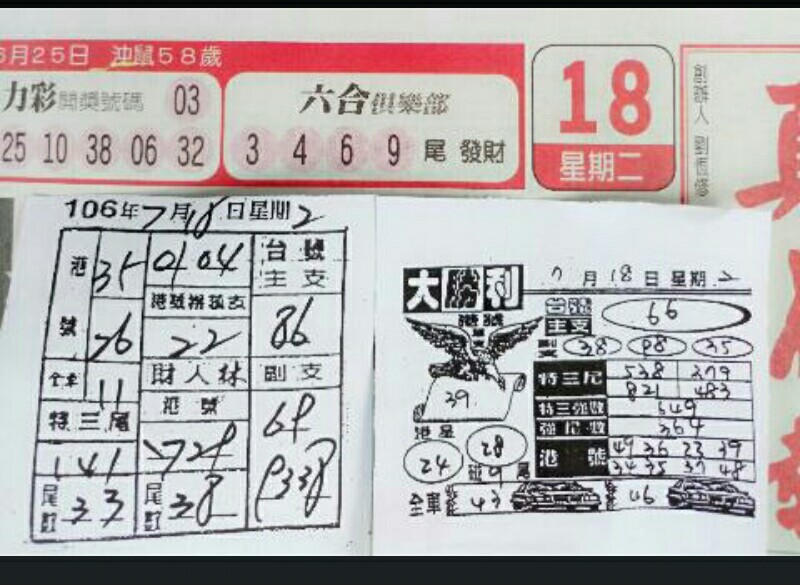 6月25日 沖鼠58歲
力彩開獎號碼 03
25 10 38 06 32
六合俱樂部
3 4 6 9 尾 發財
18
星期二
創辦人 劉
106年7月18日星期2
港號 35 0104 台號主支
26 22 86
全車 11 財人林 副支
特三尾 港號 69
141 2729
尾數 33 尾數 38
大勝利
7月18日星期2
港號
台號主支 66
副支 38 98 35
39
特三尾 538 379
821 483
特三強數 649
強尾數 364
港號 49 36 23 39
34 35 37 48
港星
24 28
碰9尾
全車 43 46